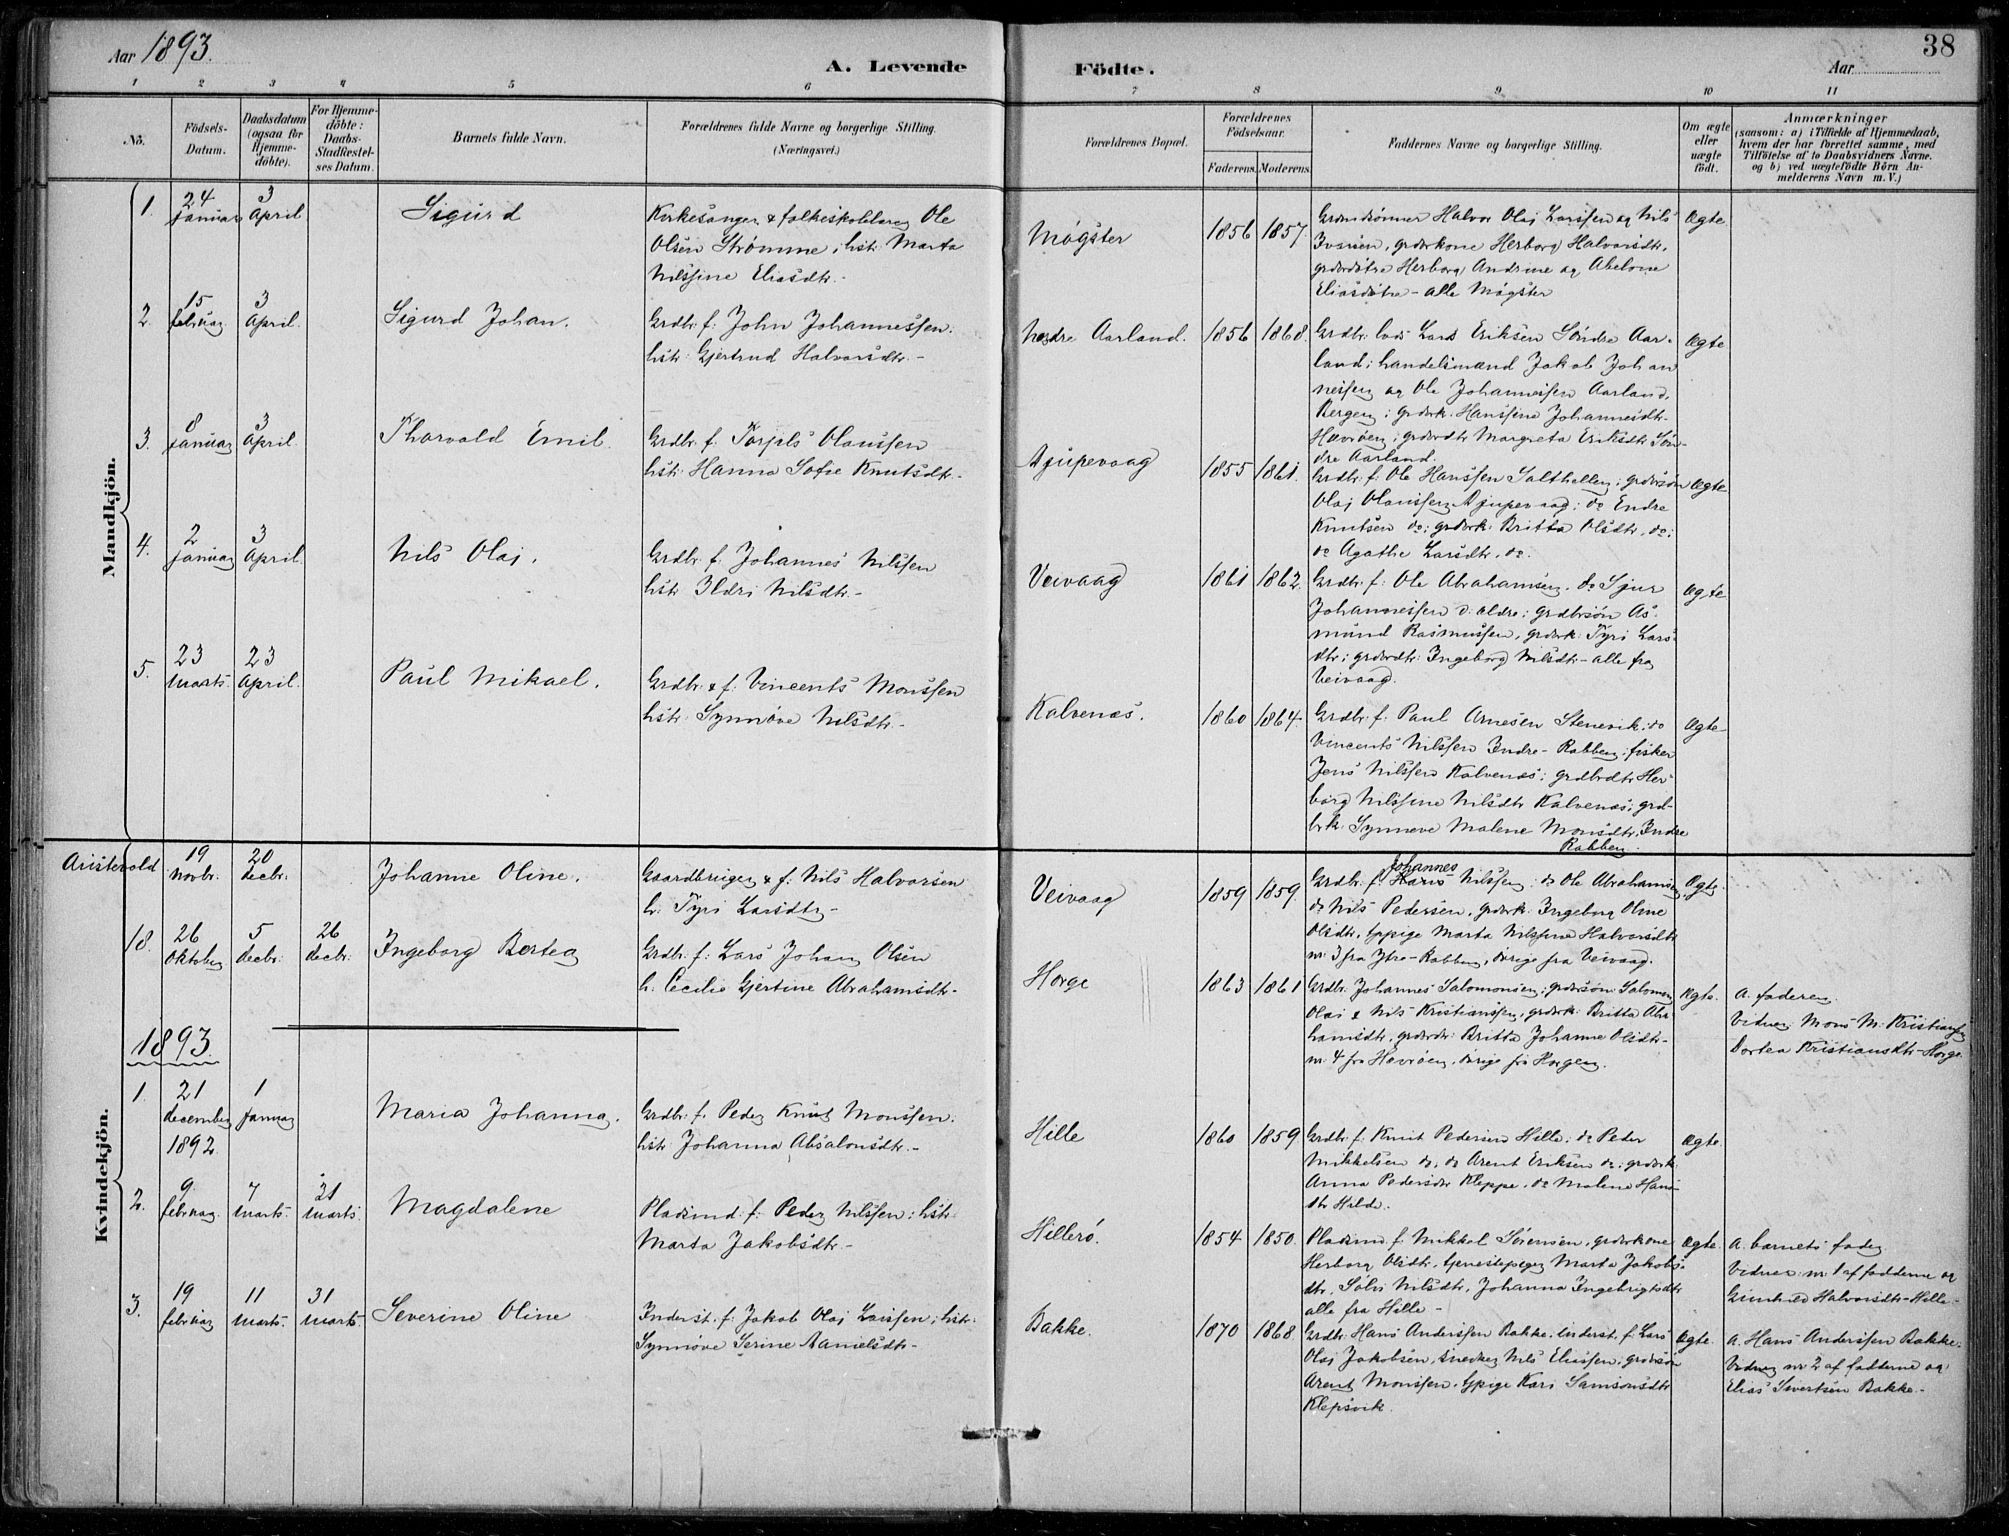 Aar 1893.
A. Levende
Födte.
Aar
38
1 2 3 4 5 6 7 8 9 10 11
No.
Födsels-
Datum.
Daabsdatum
(ogsaa for
Hjemme-
döbte).
For Hjemme-
döbte:
Daabs-
Stadfæstel-
ses Datum.
Barnets fulde Navn.
Forældrenes fulde Navne og borgerlige Stilling.
(Næringsvei.)
Forældrenes Bopæl.
Forældrenes
Födselsaar.
Faderens.
Moderens.
Faddernes Navne og borgerlige Stilling.
Om ægte
eller
uægte
födt.
Anmærkninger
(saasom: a) i Tilfælde af Hjemmedaab,
hvem der har forrettet samme, med
Tilföielse af to Daabsvidners Navne.
og b) ved uægtefödte Börn An-
melderens Navn m. V.)
Mandkjön.
1.
24
Januar
3
April
Sigurd
Kirkesanger & folkeskolelærer Ole
Olsen Strømme, hstr. Marta
Nilssine Eliasdtr.
Møgster
1856
1857.
Halvor Olai Larssen og Nils
Ivarsen, grdbrkone Herborg Halvorsdtr,
grdbrdøtre Herborg Andrine og Abelone
Eliasdøtre - alle Møgster
Ægte
2
15
februar
3
April.
Sigurd Johan.
Grdbr. f. John Johannessen.
hstr. Gjertrud Halvorsdtr. -
Nedre Aarland.
1856
1868.
Grdbr. lods Lars Eriksen Søndre Aar-
land; handelsmand Jakob Johan
nessen og Ole Johannessen Aarland,
Bergen; grdbrk. Hanssine Johannesdtr.
Hevrøen; grdbrdtr Margreta Eriksdtr Søn-
dre Aarland.
Ægte
3.
8
Januar
3
April
Tharvald Emil
Grdbr. f. Torjels Olaussen
hstr. Hanna Sofie Knutsdtr. -
Djupevaag
1855
1861.
Grdbr. f. Ole Hanssen Salthellen; grdbrsøn
Olai Olaussen Djupevaag; do Endre
Knutsen do; grdbrk. Britta Olsdtr, do;
do Agathe Larsdtr. do.
Ægte
4.
2
Januar
3
April
Nils Olai.
Grdbr. f. Johannes Nilssen
hstr. Ildri Nilsdtr. -
Veivaag
1861
1862
Grdbr. f. Ole Abrahamsen. do Sjur
Johannessen d. ældre; grdbrsøn As-
mund Rasmussen, grdbrk. Tyri Lars-
dtr; grdbrdtr. Ingeborg Nilsdtr - alle fra
Veivaag.
Ægte
5.
23
Marts.
23
April.
Paul Mikael.
Grdbr. & f. Vincents Monssen
hstr. Synnøve Nilsdtr. -
Kalvenæs.
1860
1864.
Grdbr. f. Paul Arnesen Stenevik; do
Vincents Nilssen Indre-Rabben; fisker
Jens Nilssen Kalvenæs; grdbrdtr Her-
borg Nilssine Nilsdtr Kalvenæs; grd-
brk. Synneve Malene Monsdtr. Indre
Rabben.
Ægte
19
Novbr.
20
decbr.
Johanne Oline.
Gaardbruger & f. Nils Halvorsen
h. Tyri Larsdtr -
Veivaag
1859
1859.
Johannes
Grdbr. f. Nilssen; do Ole Abrahamsen
do Nils Pedersen, grdbrk. Ingeborg Oline
Olsdtr, ppige Marta Nilssine Halvorsdtr
nr. 3 fra Ytre-Rabben, øvrige fra Veivaag.
Ægte
18.
26
Oktober
5
decbr.
26
decbr.
Ingeborg Bertea
Grdbr. f. Lars Johan Olsen
h. Cecilie Gjertine Abrahamsdtr -
Horge
1863
1861
Grdbr. Johannes Salomonsen; grdbrsøn Salomon
Olai & Nils Kristianssen, grdbrk. Britta Abra-
hamsdtr, grdbrdtr. Britta Johanne Olsdtr -
nr. 4 fra Hevrøen, øvrige fra Horgen.
Ægte.
a. faderen.
Vidner: Mons M. Kristiansen
Dortea Kristiansdtr - Horge
1893.
Kvindekjön.
1.
21
december
1892
1
Januar
Maria Johanna.
Grdbr. f. Peder Knut Monssen.
hstr. Johanna Absalonsdtr. -
Hille
1860
1859.
Grdbr. f. Knut Pedersen Hille; do Peder
Mikkelsen do, do Arent Eriksen do; grdbrk.
Anna Pedersdtr Kleppe, do Malene Hans-
dtr Hilde.
Ægte.
2.
9.
februar.
7
Marts.
31
Marts.
Magdalene
Pladsmd. f. Peder Nilssen; hstr.
Marta Jakobsdtr. -
Hillerø.
1854
1850.
Pladsmd. f. Mikkel Sørensen, grdbrkone
Herborg Olsdtr, tjenestepigen Marta Jakobs-
dtr, Nilsdtr, Johanna Ingebrigtsdtr
alle fra Hille -
Ægte.
a. barnets fader
Vidner: nr. 1 af fadderne og
Halvorsdtr - Hille -
3.
19
februar
11
Marts.
31
Marts.
Severine Oline
Inderst. f. Jakob Olai Larssen; hstr.
Synnøve Serine Danielsdtr -
Bakke.
1870
1868.
Grdbr. Hans Anderssen Bakke. Inderst. f. Lars
Olai Jakobsen, snedker Nils Eliassen, grdbrsøn
Arent Monssen, ppige Kari Samsonsdtr
Klepsvik.
Ægte.
a. Hans Anderssen Bakke.
Vidner nr 2 af fadderne og
Elias Sivertsen Bakke. -